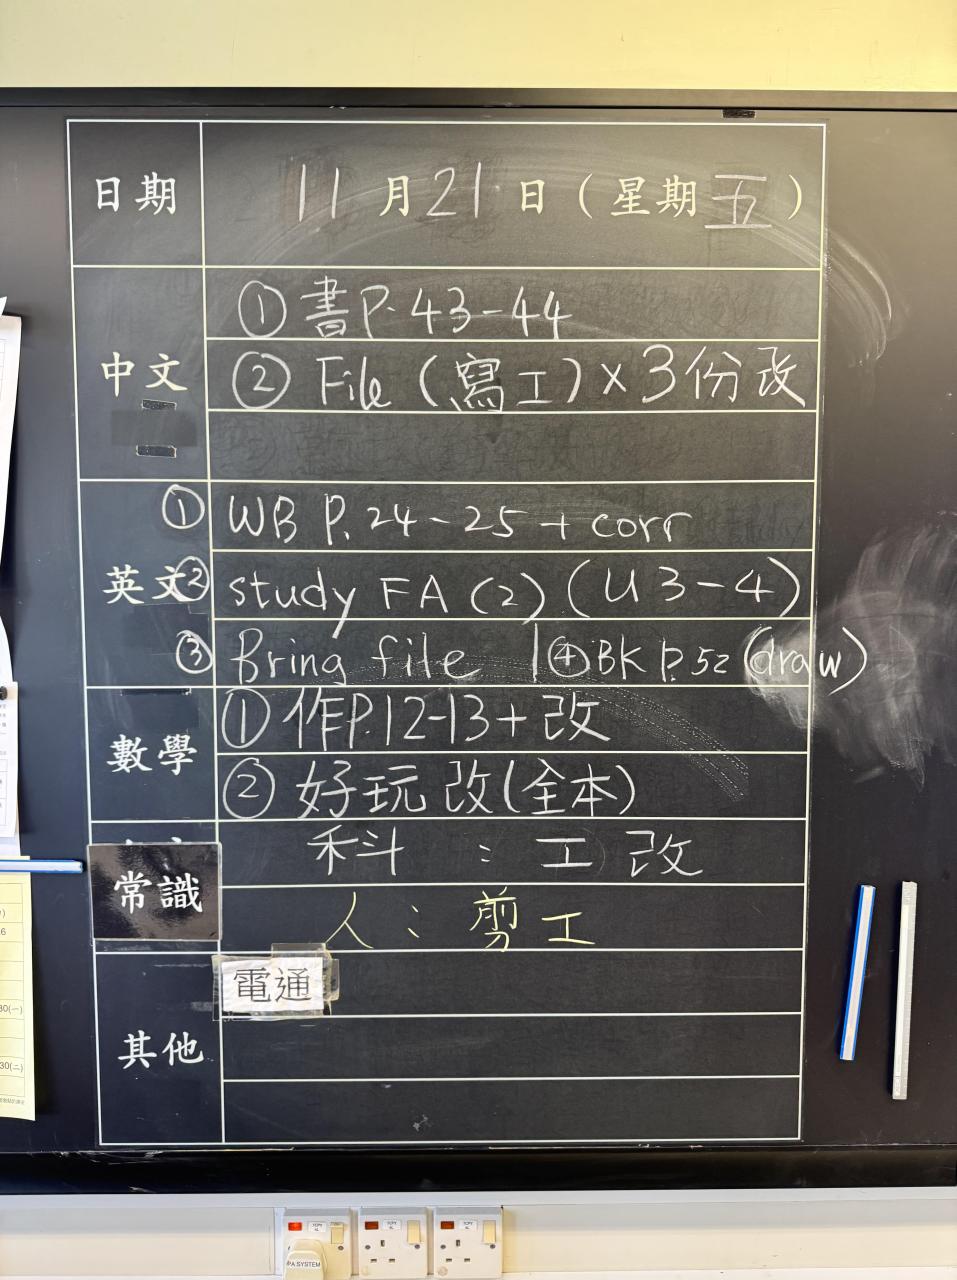 日期 11月21日(星期五)
中文
①書P.43-44
②File(寫工)×3份改
英文
①WB P.24-25 + corr
②study FA(2)(U3-4)
③Bring file |④BK P.52(draw)
數學
①作P.12-13+改
②好玩改(全本)
常識
科:工改
人:剪工
其他
電通
PA SYSTEM